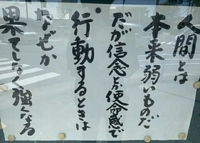 人間とは
本来弱いものだ
だが信念とか使命感で
行動するときは
なぜか
果てしなく強くなる